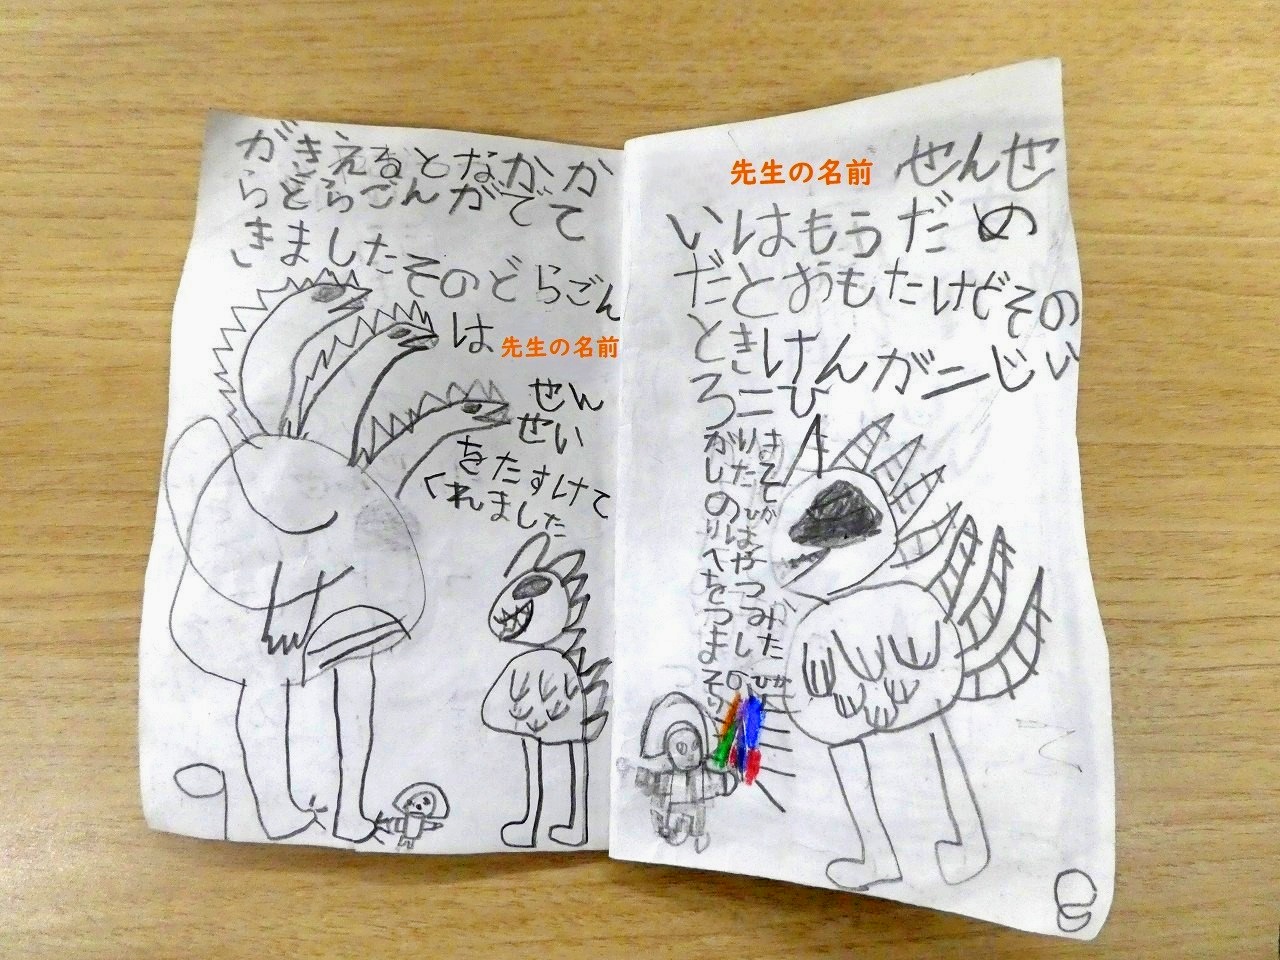 先生の名前 せんせ
いはもうだめ
だとおもたけどその
ときけんがニじい
ろニひ
がりま
した
のひか
りは
へや
をつ
つみ
ました
そのひか
り
8
がきえるとなかか
らどらごんがでて
きましたそのどらごん
は先生の名前
せん
せい
をたすけて
くれました
9